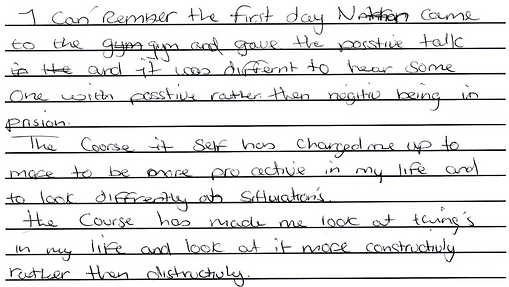 I Can Rember the first day Nathan came
to the gym gym and gave the posstive talk
in the and it was differnt to hear some
one with posstive rather then negitiv being in
prision.
The Course it self has changed me up to
more to be more pro active in my life and
to look diffrently at sitturation's.
the Course has made me look at thing's
in my life and look at it more constructivly
rather then distructivly.